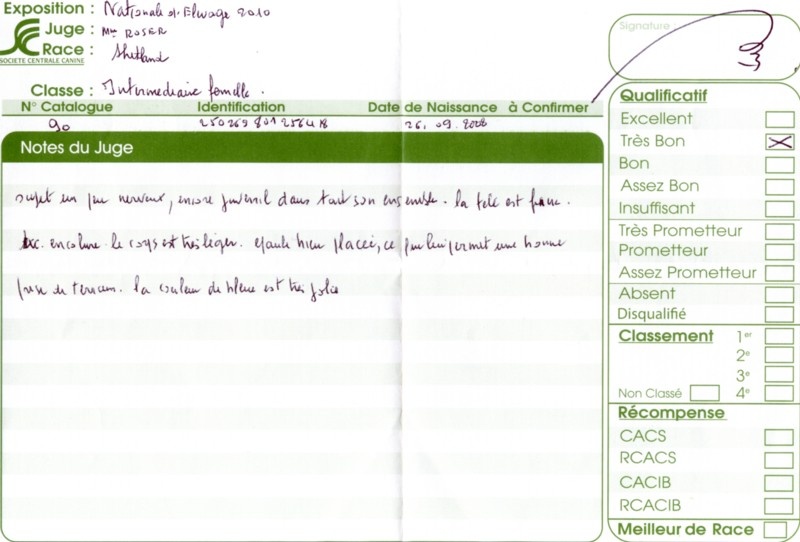 Exposition : Nationale d'Elevage 2010
Juge : Mme ROSER
Race : Shetland
SOCIETE CENTRALE CANINE
Classe : Intermediaire femelle.
N° Catalogue Identification Date de Naissance à Confirmer
90 250269801256418 26.09.2008
Notes du Juge
sujet un peu nerveux, encore juvenil dans tout son ensemble. la tête est
encolure. le corps est très léger. epaule bien placée, ce qui lui permet une bonne
prise de terrain. la couleur de bleue est très jolie
Signature
Qualificatif
Excellent
Très Bon X
Bon
Assez Bon
Insuffisant
Très Prometteur
Prometteur
Assez Prometteur
Absent
Disqualifié
Classement 1er
2e
3e
Non Classé 4e
Récompense
CACS
RCACS
CACIB
RCACIB
Meilleur de Race